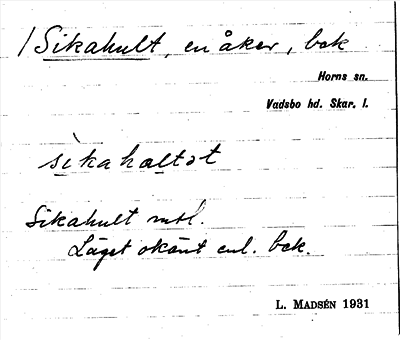 / Sikahult, en åker, bek
Horns sn.
Vadsbo hd. Skar. l.
sìkahaltət
Sikahult mtl.
Läget okänt enl. bek.
L. MADSÉN 1931